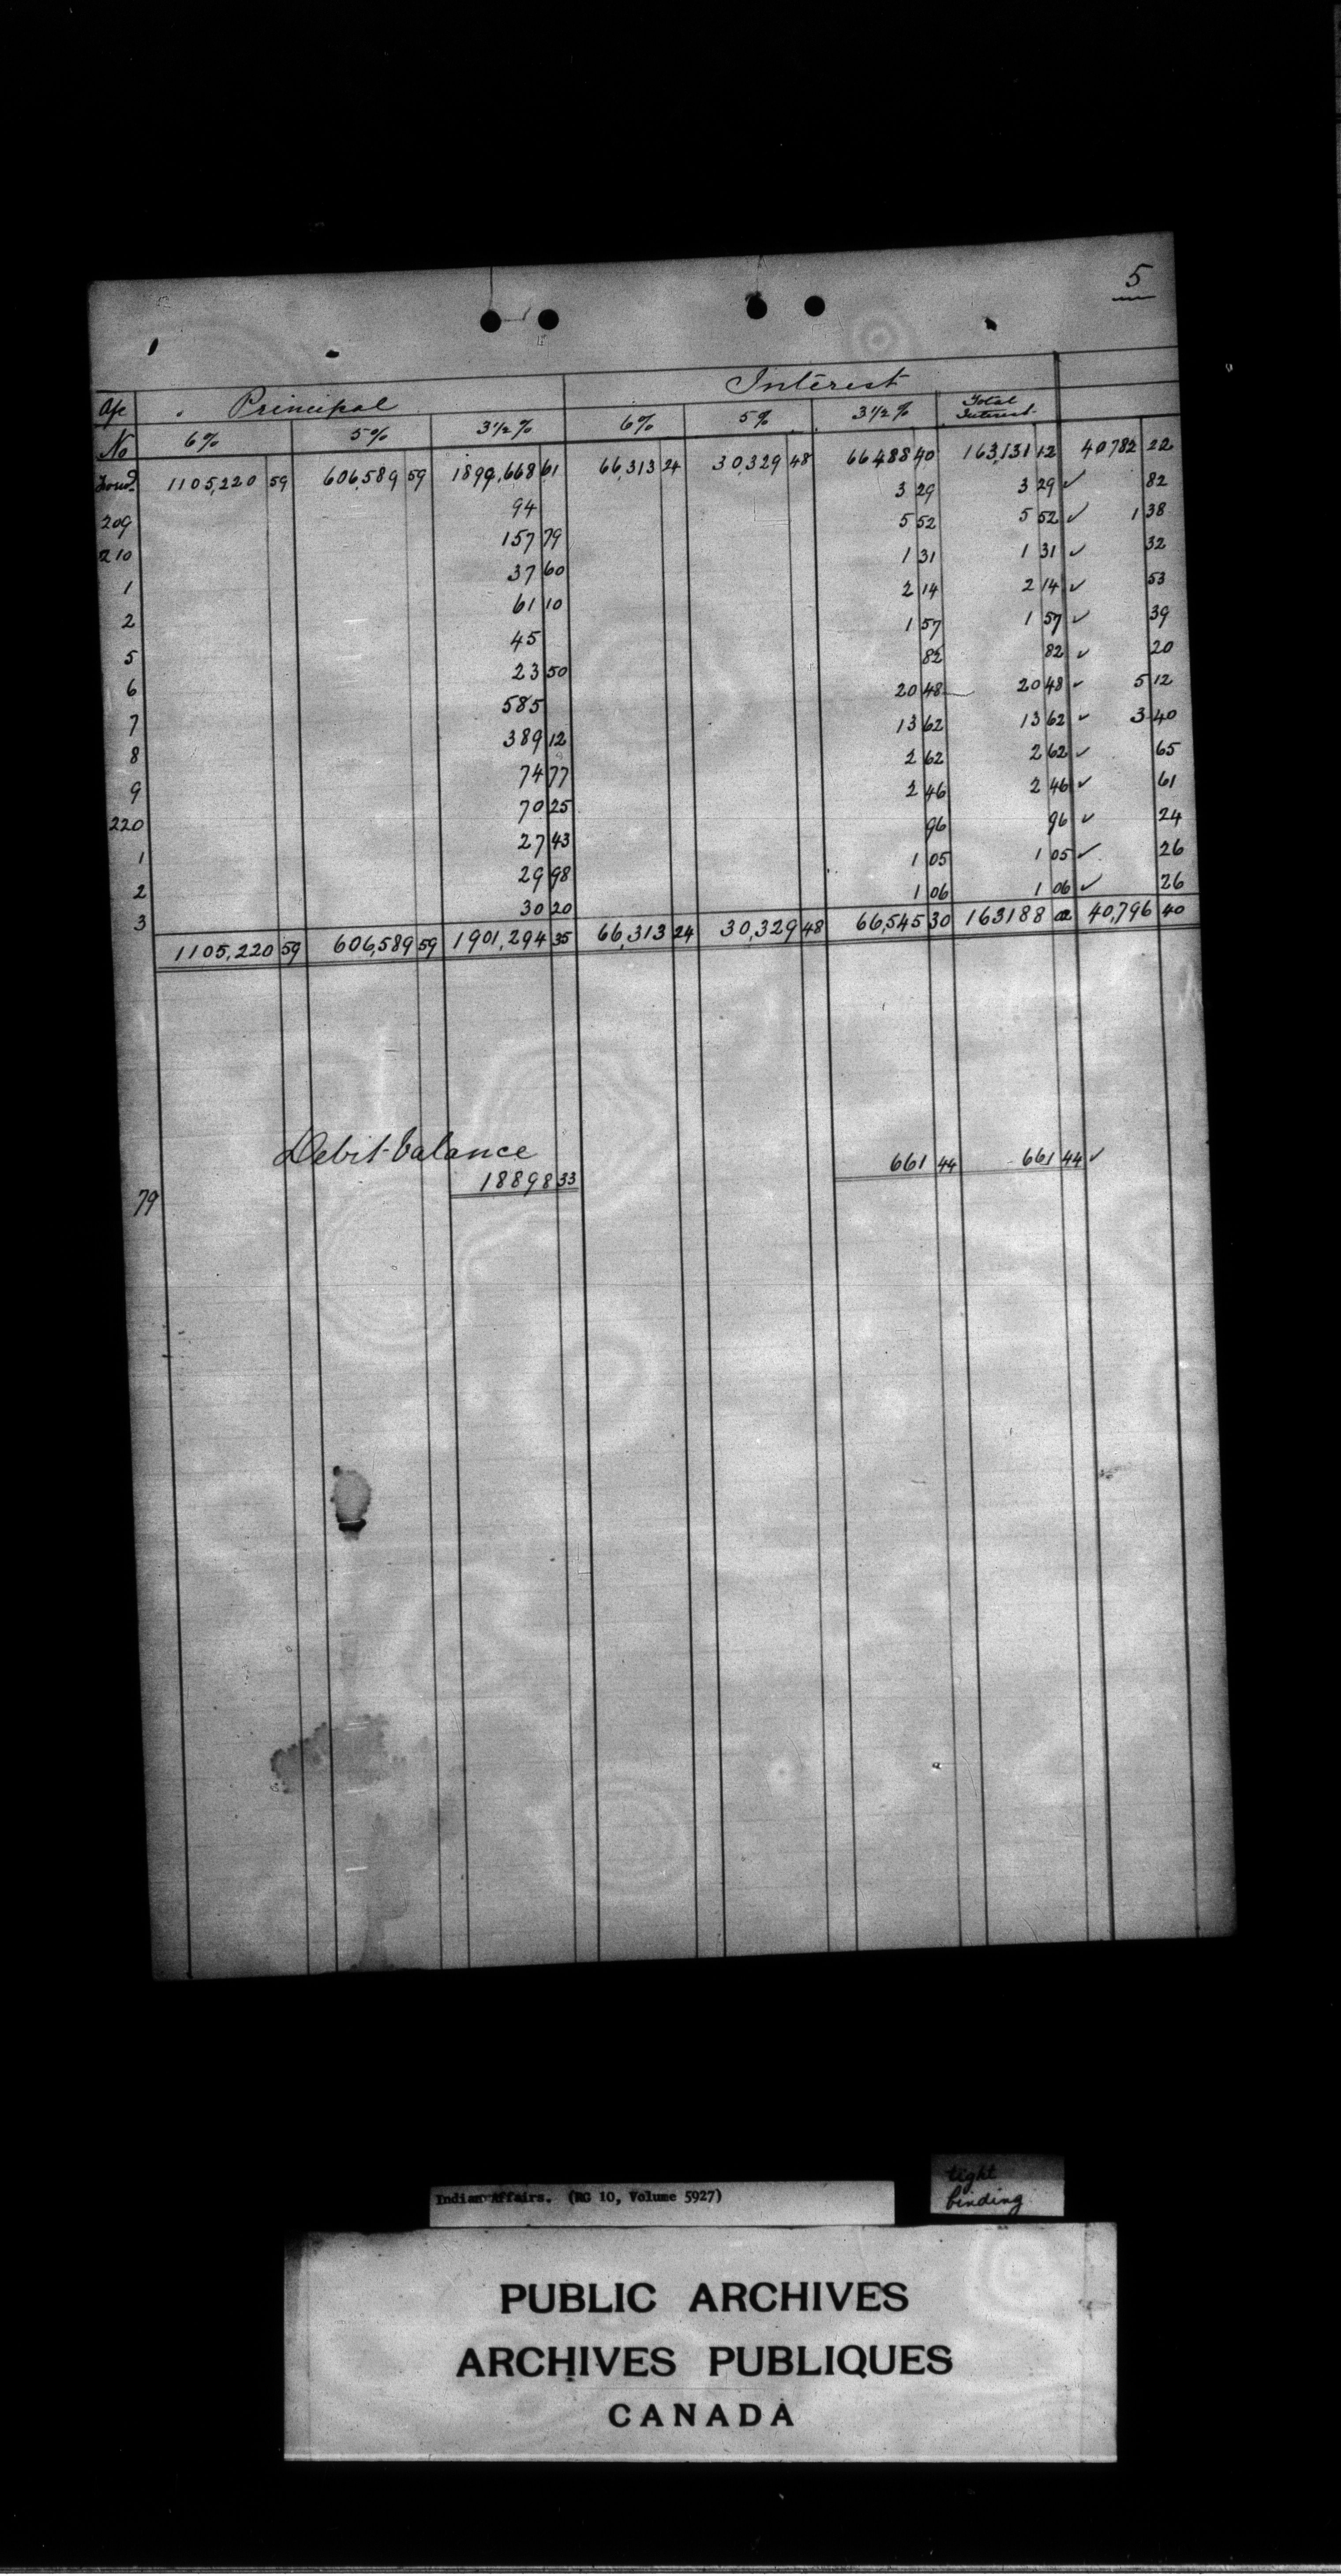 5
a/c Principal Interest
No 6% 5% 3½% 6% 5% 3½% Total Interest
Forwd. 1105,220 59 606,589 59 1899,668 61 66,313 24 30,329 48 66488 40 163,131 12 40782 22
209 94 3 29 3 29 ✓ 82
210 157 79 5 52 5 52 ✓ 1 38
1 37 60 1 31 1 31 ✓ 32
2 61 10 2 14 2 14 ✓ 53
5 45 1 57 1 57 ✓ 39
6 23 50 82 82 ✓ 20
7 585 20 48 20 48 ✓ 5 12
8 389 12 13 62 13 62 ✓ 3 40
9 74 77 2 62 2 62 ✓ 65
220 70 25 2 46 2 46 ✓ 61
1 27 43 96 96 ✓ 24
2 29 98 1 05 1 05 ✓ 26
3 30 20 1 06 1 06 ✓ 26
1105,220 59 606,589 59 1901,294 35 66,313 24 30,329 48 66,545 30 163188 02 40,796 40
Debit balance
79 18898 33 661 44 661 44 ✓
Indian Affairs. (RG 10, Volume 5927)
tight
binding
PUBLIC ARCHIVES
ARCHIVES PUBLIQUES
CANADA